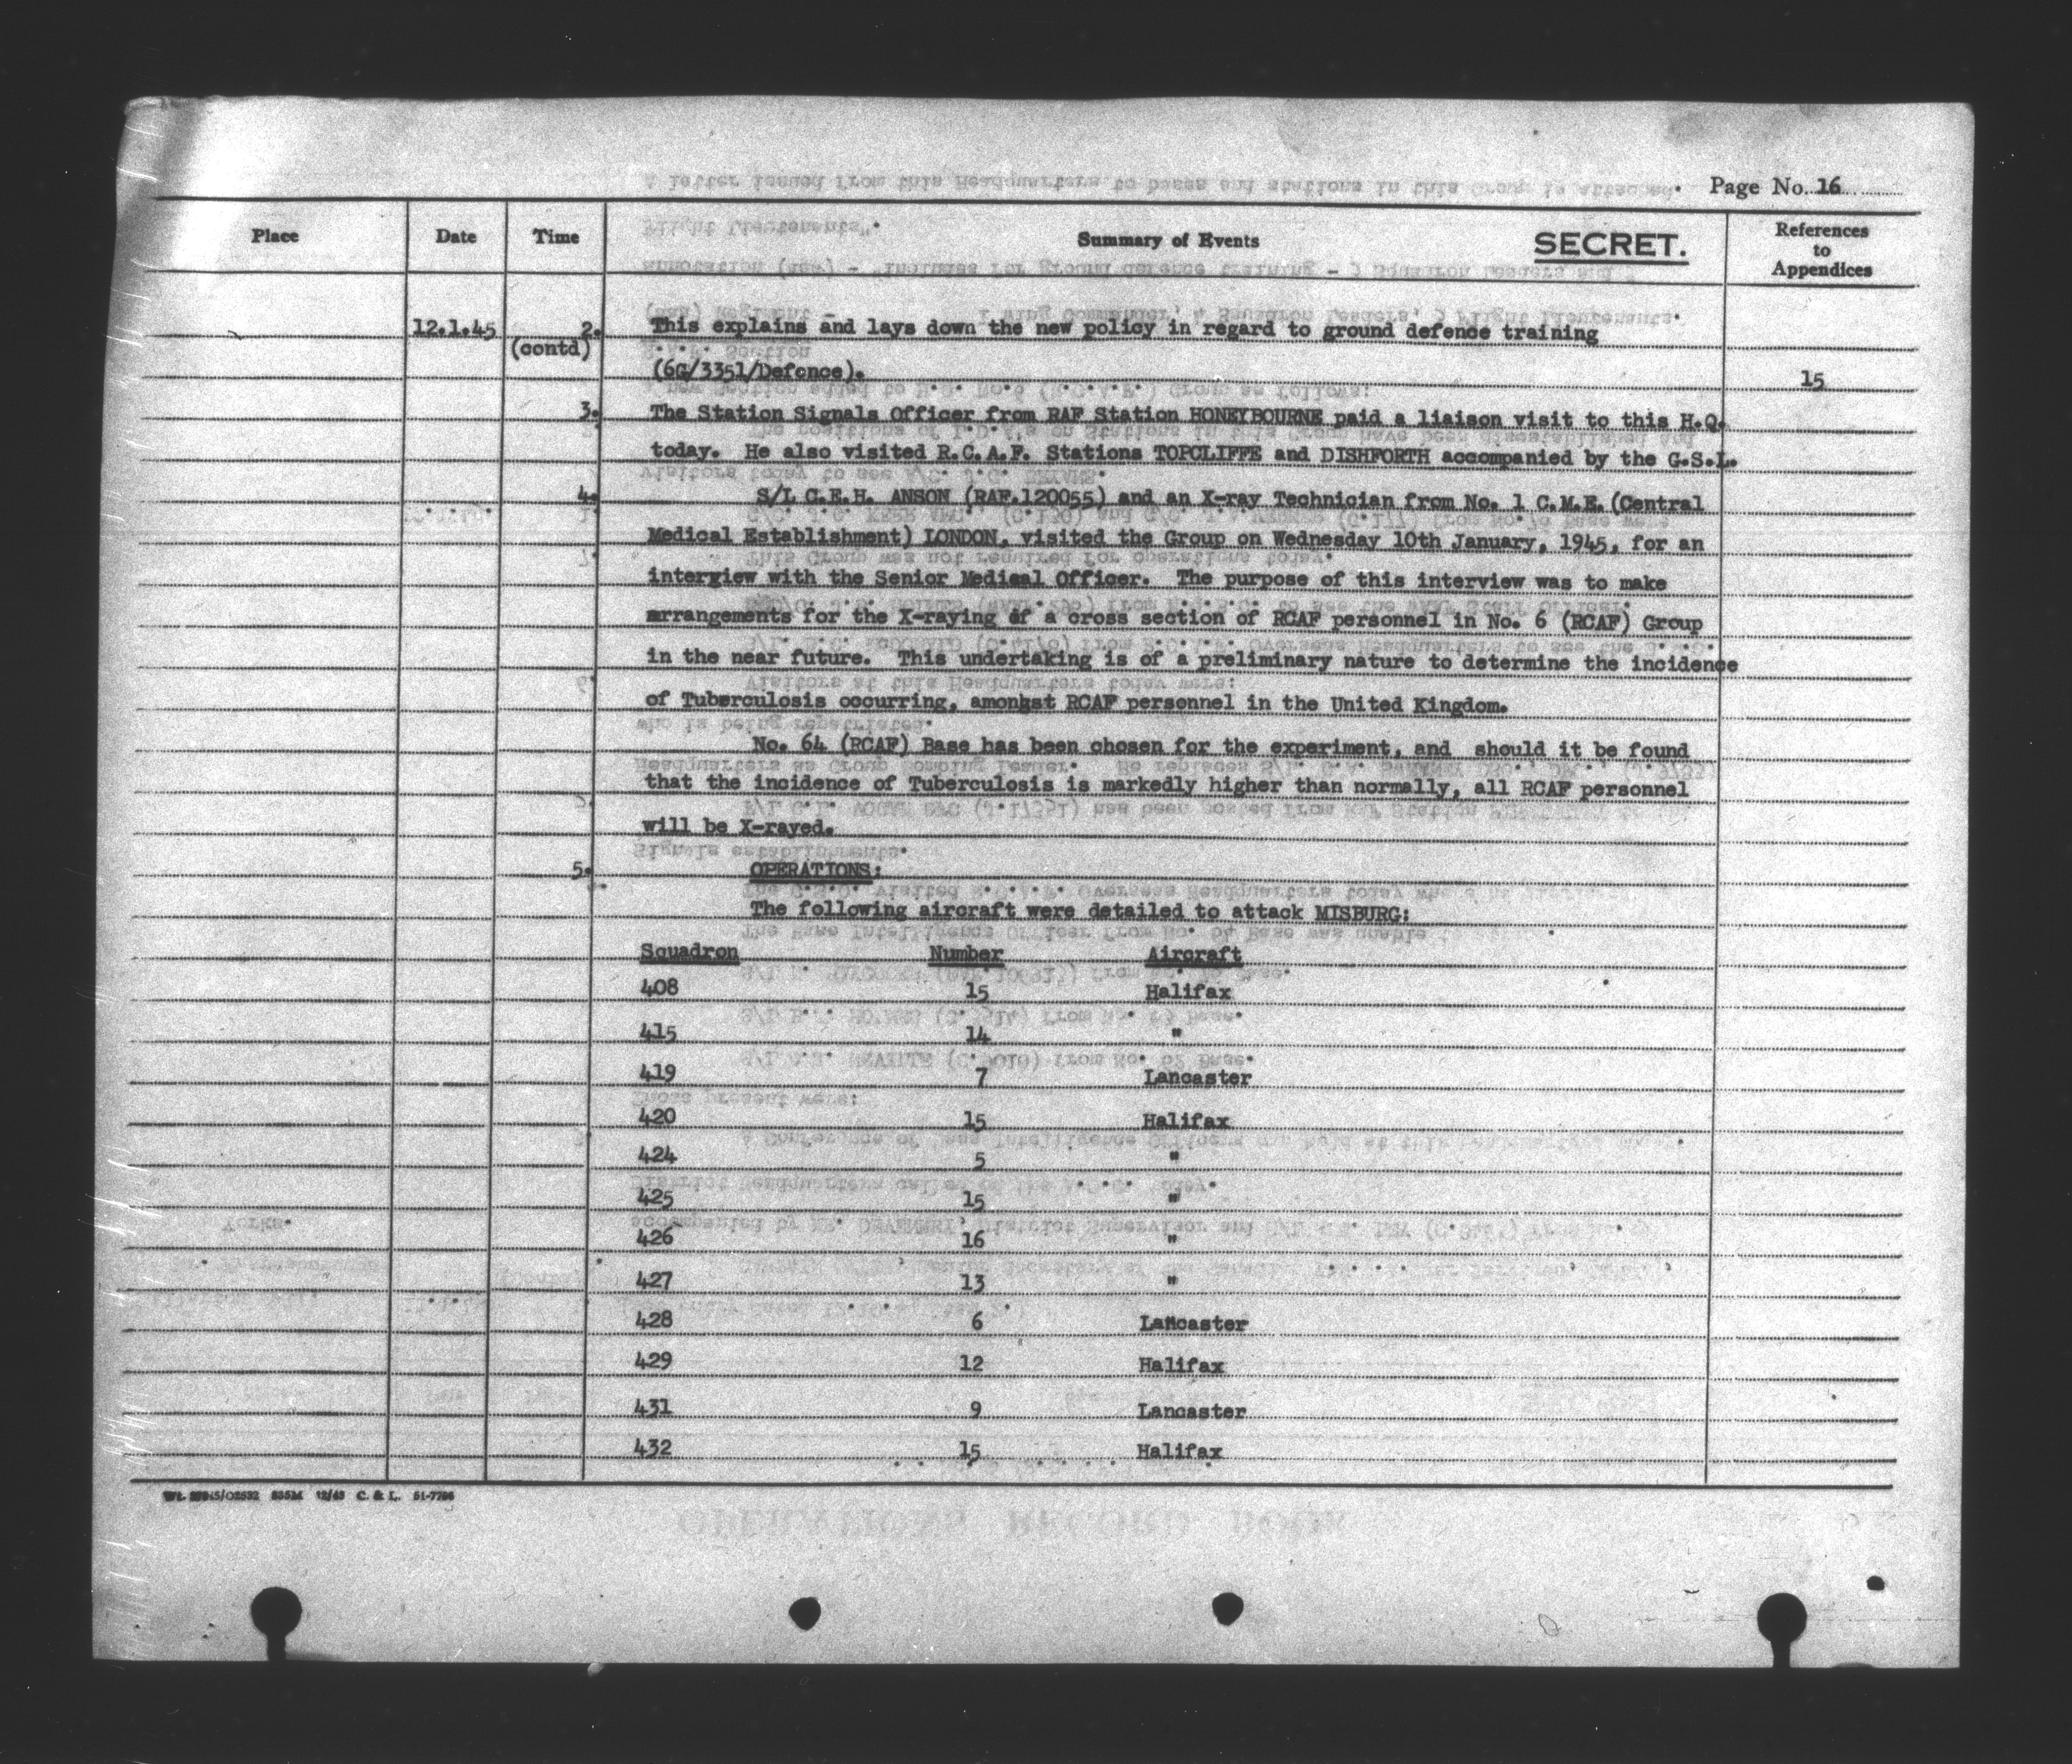 Page No. 16
Place Date Time Summary of Events SECRET. References to Appendices
12.1.45 2. This explains and lays down the new policy in regard to ground defence training
(contd)
(6G/3351/Defence). 15
3. The Station Signals Officer from RAF Station HONEYBOURNE paid a liaison visit to this H.Q.
today. He also visited R.C.A.F. Stations TOPCLIFFE and DISHFORTH accompanied by the G.S.L.
4. S/L C.E.H. ANSON (RAF.120055) and an X-ray Technician from No. 1 C.M.E. (Central
Medical Establishment) LONDON, visited the Group on Wednesday 10th January, 1945, for an
interview with the Senior Medical Officer. The purpose of this interview was to make
arrangements for the X-raying of a cross section of RCAF personnel in No. 6 (RCAF) Group
in the near future. This undertaking is of a preliminary nature to determine the incidence
of Tuberculosis occurring, amongst RCAF personnel in the United Kingdom.
No. 64 (RCAF) Base has been chosen for the experiment, and should it be found
that the incidence of Tuberculosis is markedly higher than normally, all RCAF personnel
will be X-rayed.
5. OPERATIONS:
The following aircraft were detailed to attack MISBURG:
Squadron Number Aircraft
408 15 Halifax
415 14 "
419 7 Lancaster
420 15 Halifax
424 5 "
425 15 "
426 16 "
427 13 "
428 6 Lancaster
429 12 Halifax
431 9 Lancaster
432 15 Halifax
12/43 C. & L. 51-7796